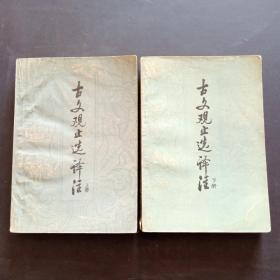 古文观止选译注
上册
古文观止选译注
下册